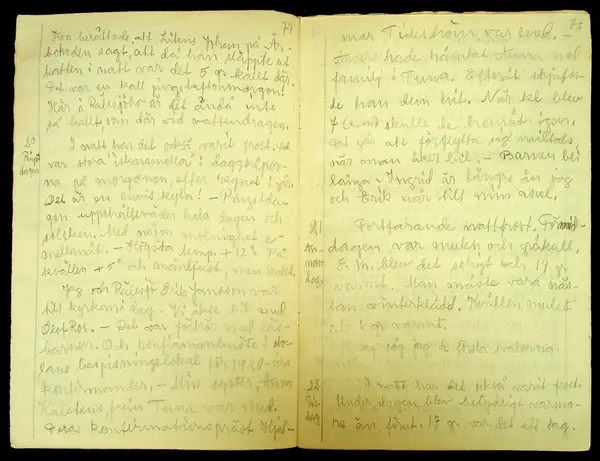 74
Hon berättade, att Litens Johan på Än-
boheden sagt, att då han släppte ut
katten i natt var det 5 gr. kallt där.
Det var en kall pingstaftonmorgon!
Här i Rullsjöbo är det ändå inte
så kallt, som där vid vattendragen.
20
Pingst
dagen
I natt har det också varit frost. Det
var stora iskarameller i
på morgonen, efter regnet i går.
Det är en envis kyla! – Pingstda-
gen uppehållsväder hela dagen och
solsken. Med någon molnighet e-
mellanåt. – Högsta temp. + 12°. På
kvällen + 5° och månljust, men kallt.
Jag och Rullsjö Erik Jonsson var
till kyrkan i dag. Vi åkte bil med
Olof Ros. – Det var förhör med läs-
barnen. Och konfirmandmöte i sko-
lans bespisningslokal för 1920-års
konfirmander. – Min syster, Anna
från Tuna var med.
Deras konfirmationspräst Hjäl-
75
mar Tideström var med. –
Anders hade hämtat Anna med
familj i Tuna. Efteråt skjutsa-
de han dem hit. När kl. blev
7 e.m. skulle de hemåt igen.
Det går att förflytta sig
när man åker bil. – Barnen bli
långa. Ingrid är längre än jag
och Erik når till min axel.
21
An-
nan
dag.
Fortfarande nattfrost. Förmid-
dagen var mulen och gråkall.
E. m. blev det soligt och 14 gr
varmt. Man måste vara näs-
tan vinterklädd. Kvällen mulet
och 6 gr varmt.
I dag såg jag de första svalorna.
22
Tis-
dag
I natt har det också varit frost.
Under dagen blev betydligt varma-
re än förut. 17 gr var det eft. dag.